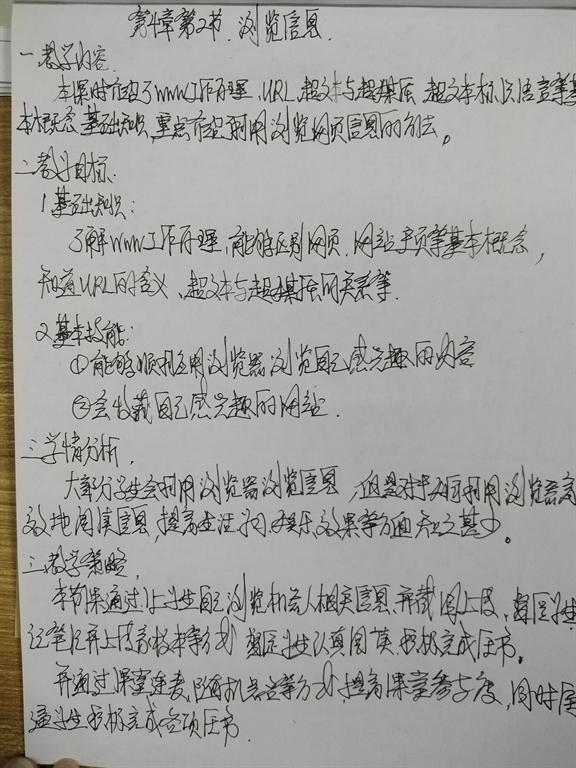 第4章第2节. 浏览信息.
一.教学内容.
本课时介绍了WWW工作原理、URL、超文本与超媒体、超文本标识语言等基
本概念、基础知识,重点介绍利用浏览网页信息的方法。
二.教学目标.
1.基础知识:
了解WWW工作原理,能够区别网页、网站、主页等基本概念,
知道URL的含义、超文本与超媒体的关系等.
2.基本技能:
①能够顺利应用浏览器浏览自己感兴趣的内容
②会收藏自己感兴趣的网站.
三.学情分析.
大部分学生会利用浏览器浏览信息,但是对于如何利用浏览器高
效地阅读信息,提高生活学习娱乐效果等方面知之甚少。
三.教学策略.
本节课通过让学生自己浏览机器人相关信息,并截图上传,
记笔记并上传 等 学生认真阅读,积极完成任务。
并通过课堂 ,随机 等 ,提高课堂参与度,同时
学生积极完成各项任务.